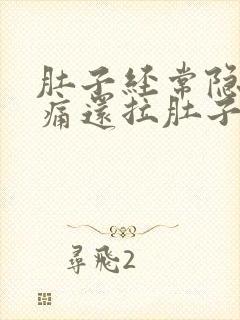 肚子经常隐
痛還拉肚子
尋飛2